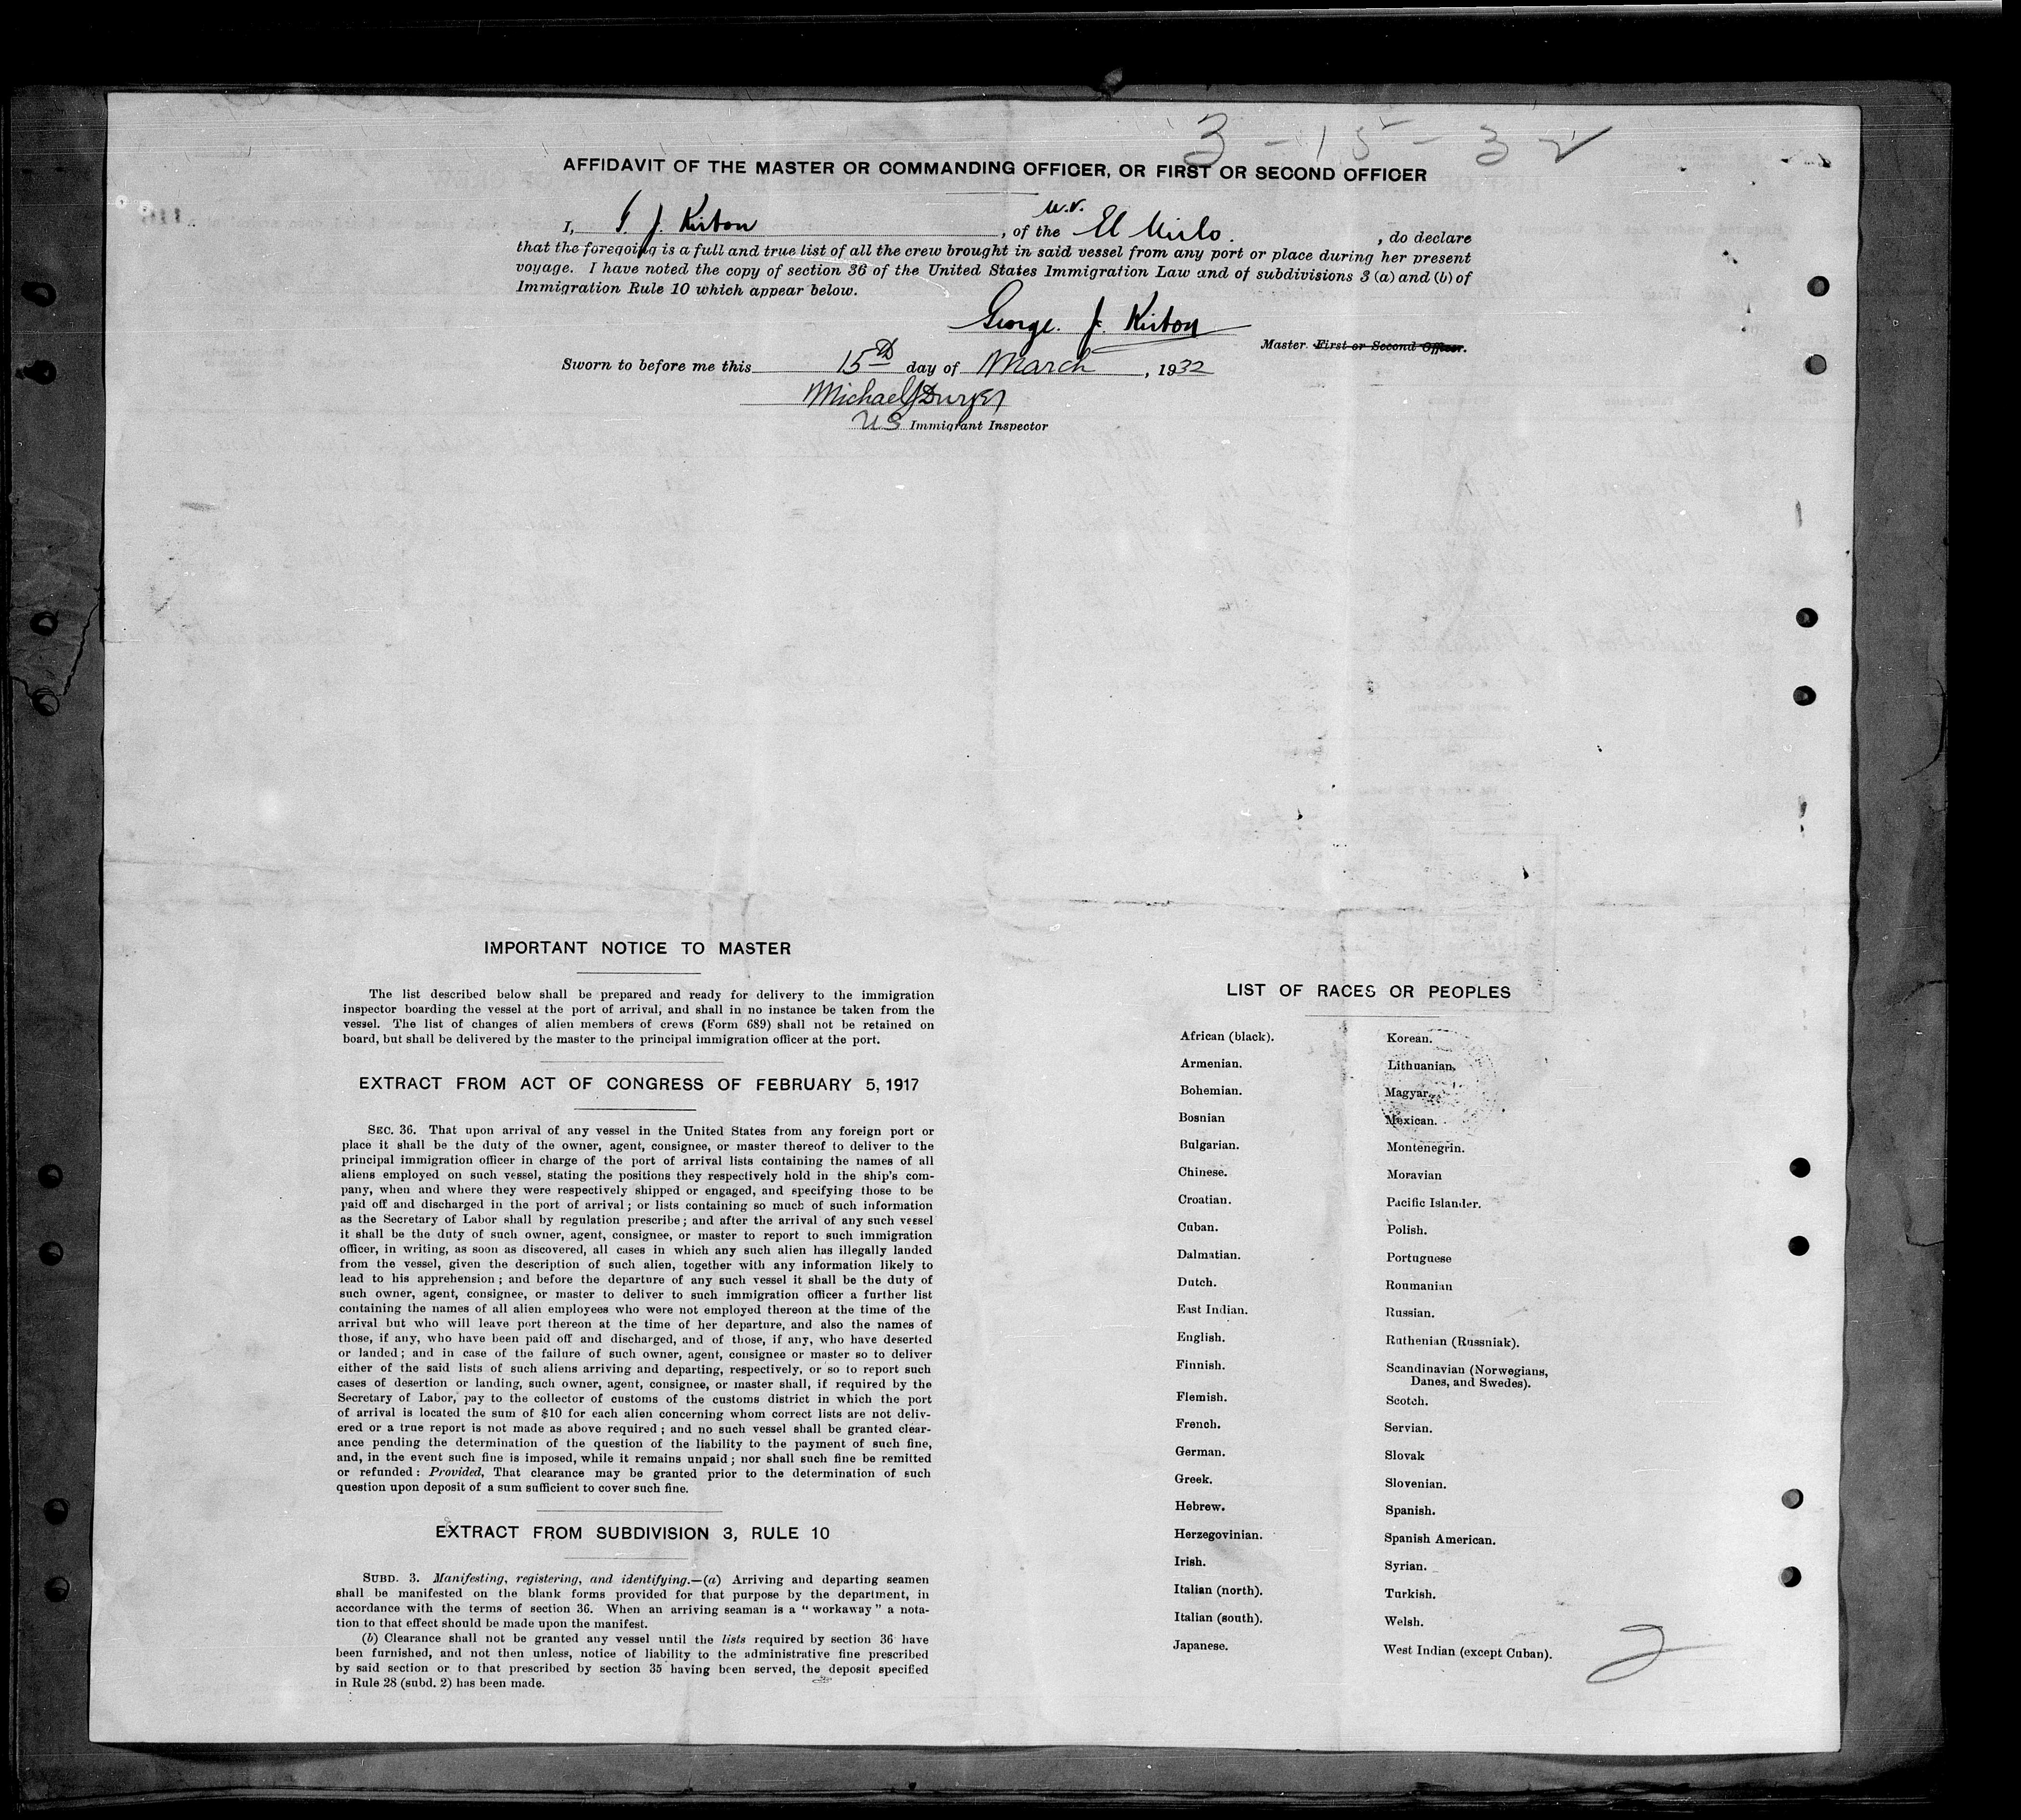 3-15-32
AFFIDAVIT OF THE MASTER OR COMMANDING OFFICER, OR FIRST OR SECOND OFFICER
I, G. J. Kirton, of the M.V. El Mirlo, do declare
that the foregoing is a full and true list of all the crew brought in said vessel from any port or place during her present
voyage. I have noted the copy of section 36 of the United States Immigration Law and of subdivisions 3 (a) and (b) of
Immigration Rule 10 which appear below.
George. J. Kirton
Master. First or Second Officer.
Sworn to before me this 15th day of March, 1932
Michael J
US Immigrant Inspector
IMPORTANT NOTICE TO MASTER
The list described below shall be prepared and ready for delivery to the immigration
inspector boarding the vessel at the port of arrival, and shall in no instance be taken from the
vessel. The list of changes of alien members of crews (Form 689) shall not be retained on
board, but shall be delivered by the master to the principal immigration officer at the port.
EXTRACT FROM ACT OF CONGRESS OF FEBRUARY 5, 1917
SEC. 36. That upon arrival of any vessel in the United States from any foreign port or
place it shall be the duty of the owner, agent, consignee, or master thereof to deliver to the
principal immigration officer in charge of the port of arrival lists containing the names of all
aliens employed on such vessel, stating the positions they respectively hold in the ship's com-
pany, when and where they were respectively shipped or engaged, and specifying those to be
paid off and discharged in the port of arrival; or lists containing so much of such information
as the Secretary of Labor shall by regulation prescribe; and after the arrival of any such vessel
it shall be the duty of such owner, agent, consignee, or master to report to such immigration
officer, in writing, as soon as discovered, all cases in which any such alien has illegally landed
from the vessel, given the description of such alien, together with any information likely to
lead to his apprehension; and before the departure of any such vessel it shall be the duty of
such owner, agent, consignee, or master to deliver to such immigration officer a further list
containing the names of all alien employees who were not employed thereon at the time of the
arrival but who will leave port thereon at the time of her departure, and also the names of
those, if any, who have been paid off and discharged, and of those, if any, who have deserted
or landed; and in case of the failure of such owner, agent, consignee or master so to deliver
either of the said lists of such aliens arriving and departing, respectively, or so to report such
cases of desertion or landing, such owner, agent, consignee, or master shall, if required by the
Secretary of Labor, pay to the collector of customs of the customs district in which the port
of arrival is located the sum of $10 for each alien concerning whom correct lists are not deliv-
ered or a true report is not made as above required; and no such vessel shall be granted clear-
ance pending the determination of the question of the liability to the payment of such fine,
and, in the event such fine is imposed, while it remains unpaid; nor shall such fine be remitted
or refunded: Provided, That clearance may be granted prior to the determination of such
question upon deposit of a sum sufficient to cover such fine.
EXTRACT FROM SUBDIVISION 3, RULE 10
SUBD. 3. Manifesting, registering, and identifying.—(a) Arriving and departing seamen
shall be manifested on the blank forms provided for that purpose by the department, in
accordance with the terms of section 36. When an arriving seaman is a "workaway" a nota-
tion to that effect should be made upon the manifest.
(b) Clearance shall not be granted any vessel until the lists required by section 36 have
been furnished, and not then unless, notice of liability to the administrative fine prescribed
by said section or to that prescribed by section 35 having been served, the deposit specified
in Rule 28 (subd. 2) has been made.
LIST OF RACES OR PEOPLES
African (black).
Armenian.
Bohemian.
Bosnian
Bulgarian.
Chinese.
Croatian.
Cuban.
Dalmatian.
Dutch.
East Indian.
English.
Finnish.
Flemish.
French.
German.
Greek.
Hebrew.
Herzegovinian.
Irish.
Italian (north).
Italian (south).
Japanese.
Korean.
Lithuanian.
Magyar.
Mexican.
Montenegrin.
Moravian
Pacific Islander.
Polish.
Portuguese
Roumanian
Russian.
Ruthenian (Russniak).
Scandinavian (Norwegians,
Danes, and Swedes).
Scotch.
Servian.
Slovak
Slovenian.
Spanish.
Spanish American.
Syrian.
Turkish.
Welsh.
West Indian (except Cuban).
2